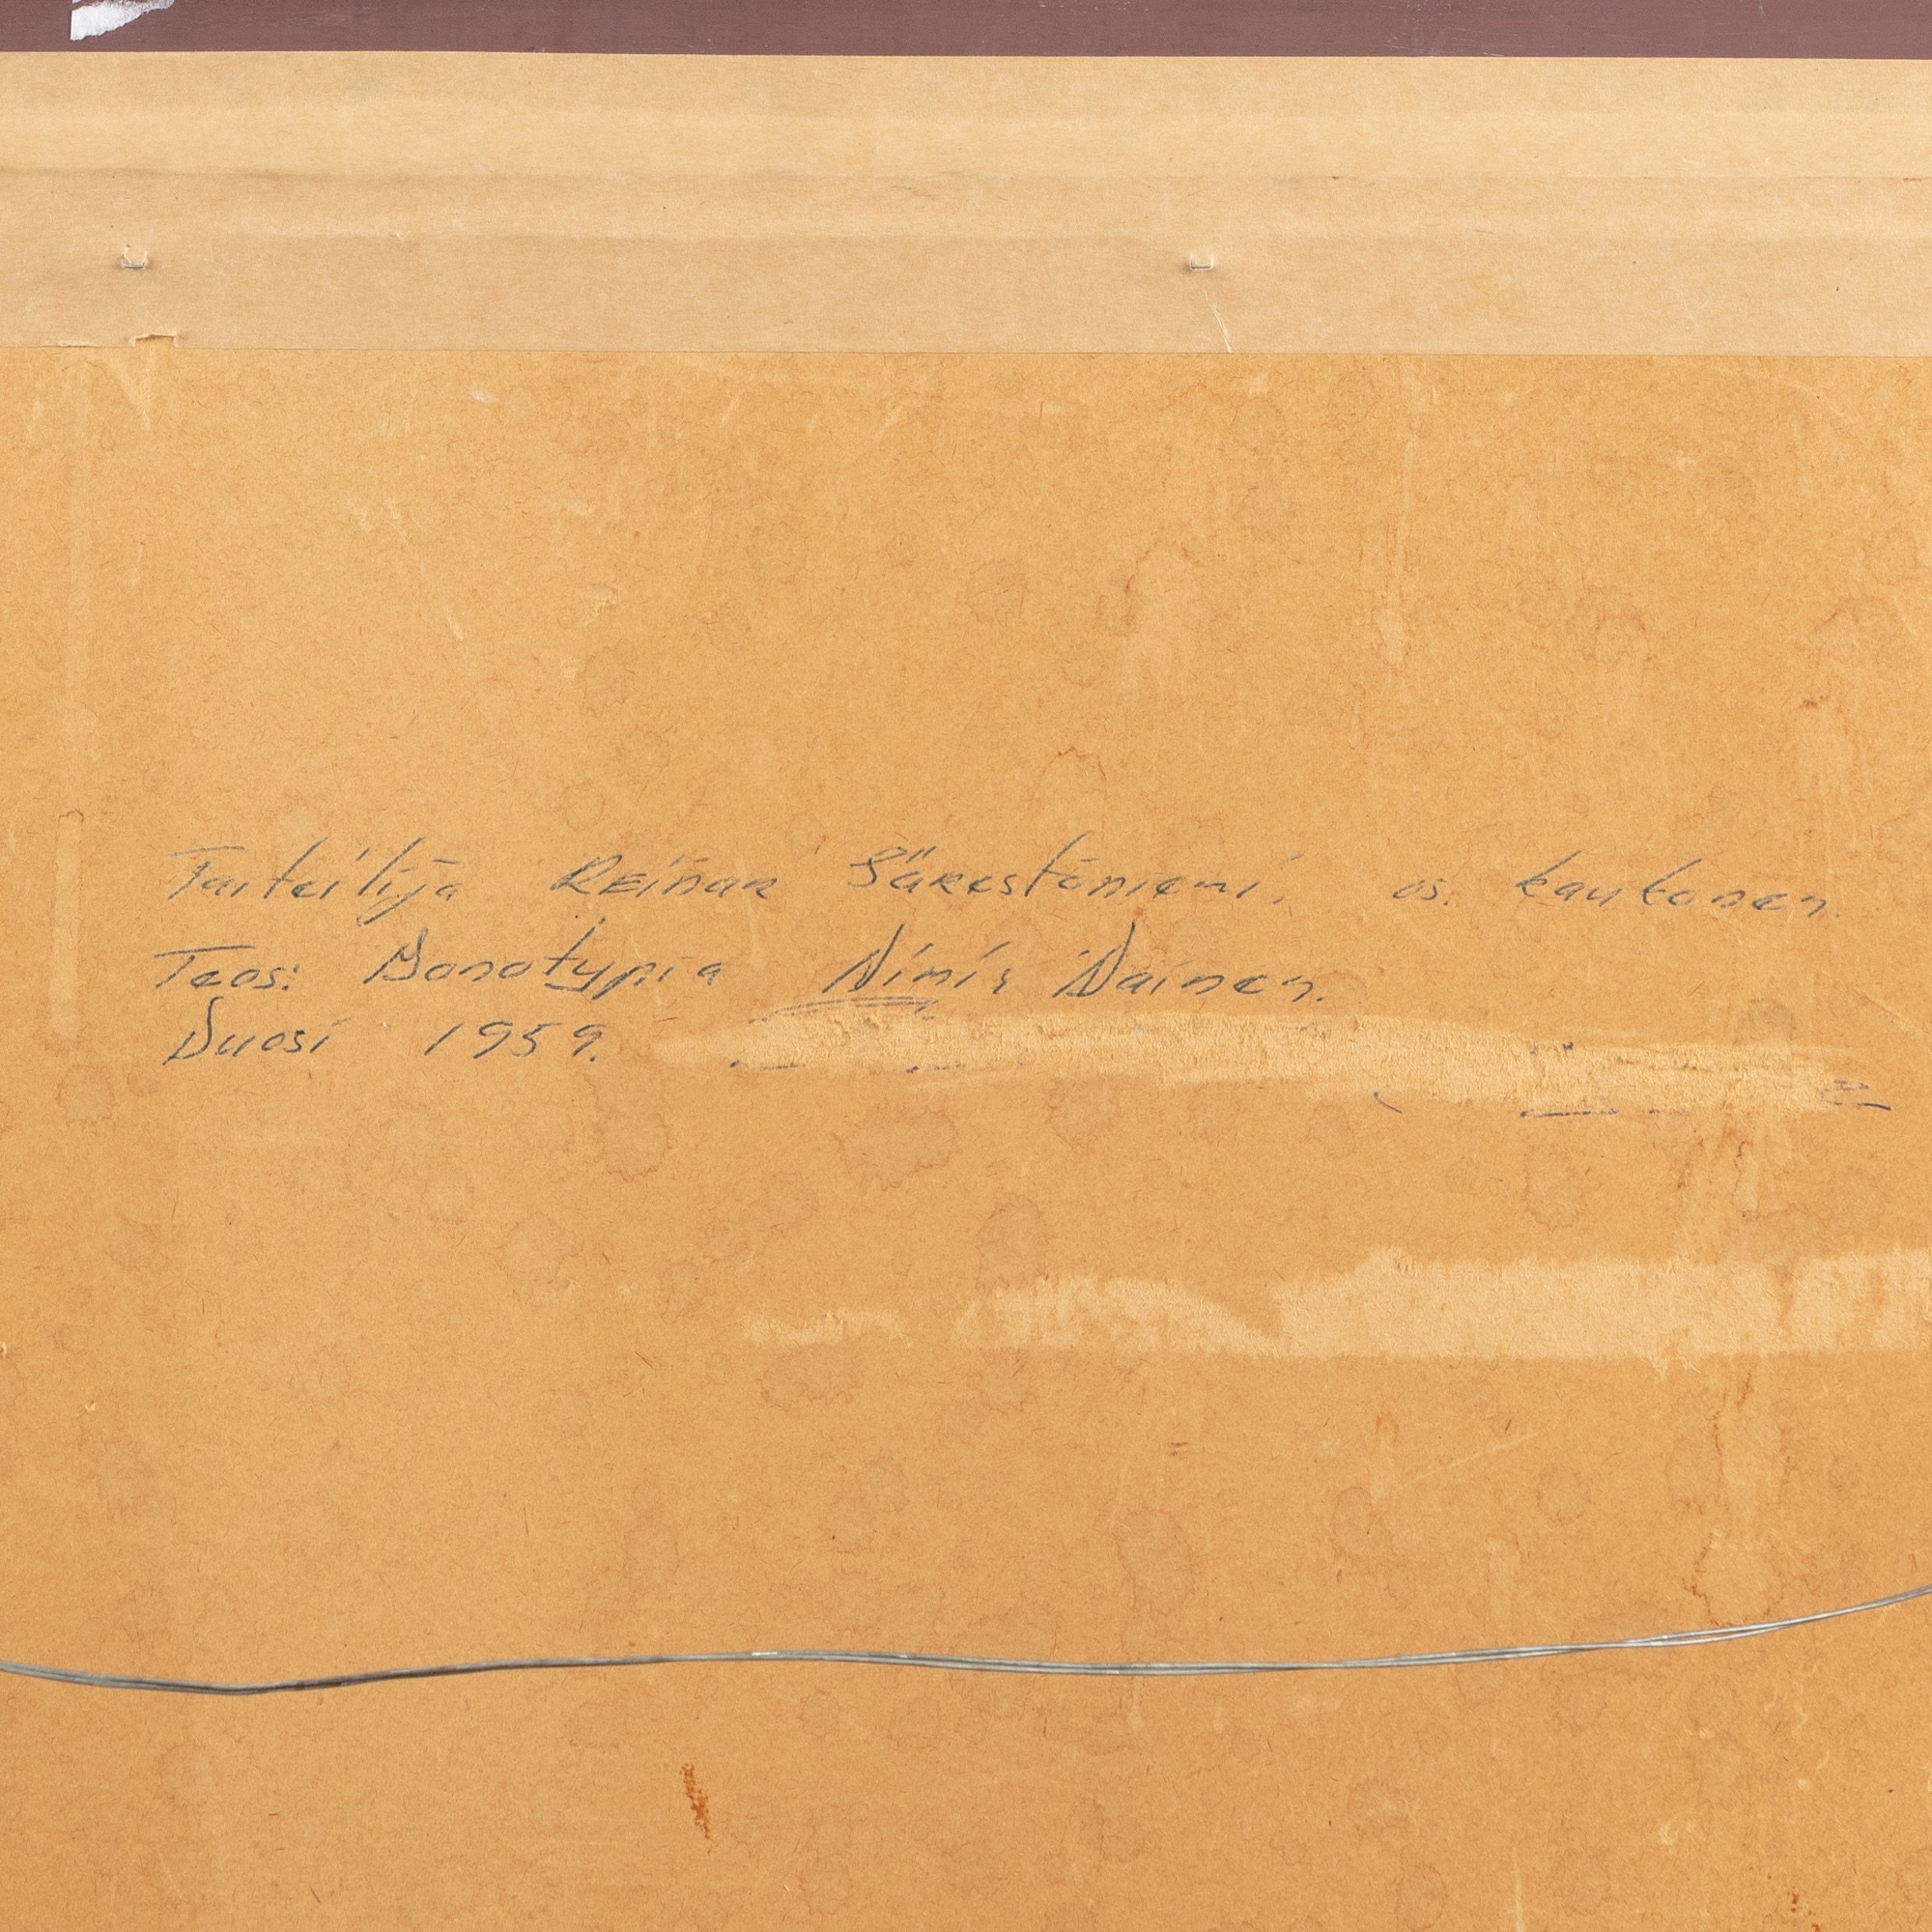 Taiteilija Reinar Särestöniemi. os. kaukonen.
Teos: Monotypia Nimis Nainen.
Vuosi 1959.